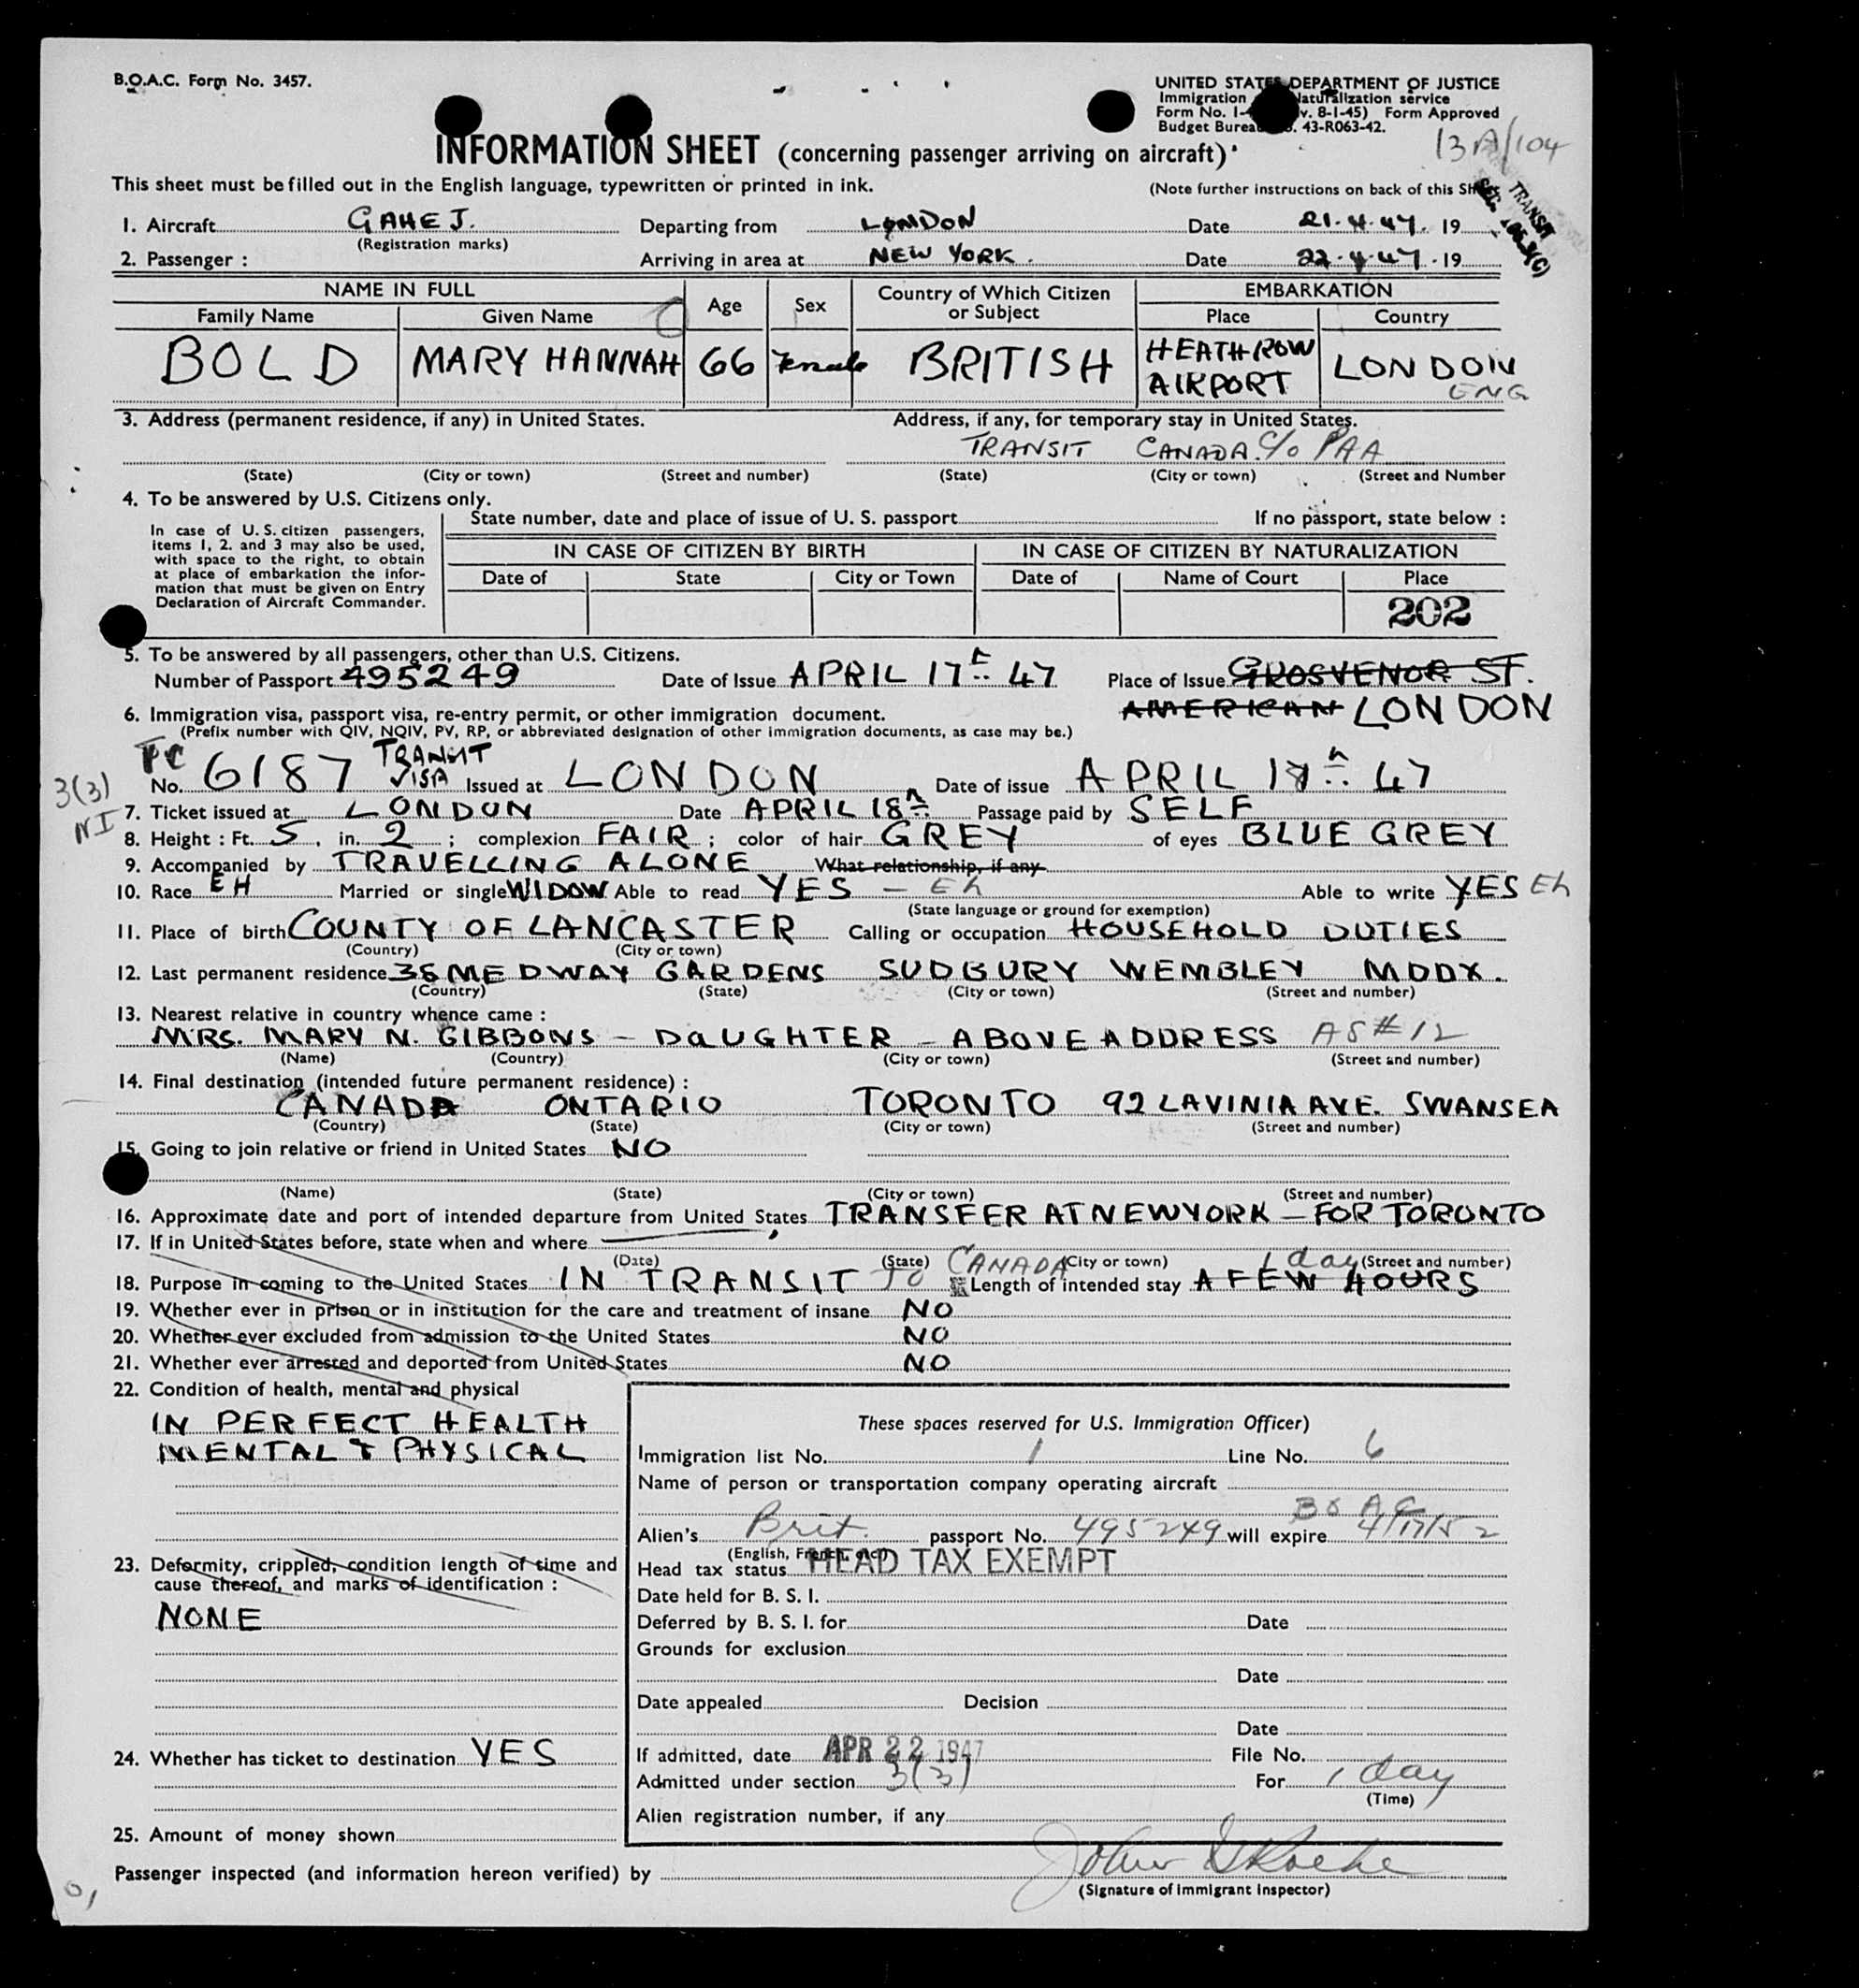 B.O.A.C. Form No. 3457.
UNITED STATES DEPARTMENT OF JUSTICE
Immigration Naturalization service
Form No. I- v. 8-1-45) Form Approved
Budget Bureau . 43-R063-42.
13A/104
INFORMATION SHEET (concerning passenger arriving on aircraft)
This sheet must be filled out in the English language, typewritten or printed in ink.
(Note further instructions on back of this Sh
TRANSIT
SEC.
1. Aircraft GAHEJ. Departing from LONDON Date 21.4.47. 19
(Registration marks)
2. Passenger : Arriving in area at NEW YORK. Date 22.4.47.19
NAME IN FULL Age Sex Country of Which Citizen or Subject EMBARKATION
Family Name Given Name Place Country
BOLD MARY HANNAH 66 Female BRITISH HEATHROW AIRPORT LONDON
ENG
3. Address (permanent residence, if any) in United States. Address, if any, for temporary stay in United States.
TRANSIT CANADA. C/o PAA
(State) (City or town) (Street and number) (State) (City or town) (Street and Number
4. To be answered by U.S. Citizens only.
In case of U.S. citizen passengers,
items 1, 2. and 3 may also be used,
with space to the right, to obtain
at place of embarkation the infor-
mation that must be given on Entry
Declaration of Aircraft Commander.
State number, date and place of issue of U. S. passport If no passport, state below :
IN CASE OF CITIZEN BY BIRTH IN CASE OF CITIZEN BY NATURALIZATION
Date of State City or Town Date of Name of Court Place
202
5. To be answered by all passengers, other than U.S. Citizens.
Number of Passport 495249 Date of Issue APRIL 17th 47 Place of Issue GROSVENOR ST.
AMERICAN LONDON
6. Immigration visa, passport visa, re-entry permit, or other immigration document.
(Prefix number with QIV, NQIV, PV, RP, or abbreviated designation of other immigration documents, as case may be.)
3(3)
NI
No. 6187 TRANSIT VISA Issued at LONDON Date of issue APRIL 17th 47
7. Ticket issued at LONDON Date APRIL 18th Passage paid by SELF
8. Height : Ft. 5 . in. 2 ; complexion FAIR ; color of hair GREY of eyes BLUE GREY
9. Accompanied by TRAVELLING ALONE What relationship, if any
10. Race EH Married or single WIDOW Able to read YES – Eh Able to write YES Eh
(State language or ground for exemption)
11. Place of birth COUNTY OF LANCASTER Calling or occupation HOUSEHOLD DUTIES
(Country) (City or town)
12. Last permanent residence 38 MEDWAY GARDENS SUDBURY WEMBLEY MDDX.
(Country) (State) (City or town) (Street and number)
13. Nearest relative in country whence came :
MRS. MARY N. GIBBONS – DAUGHTER – ABOVE ADDRESS AS # 12
(Name) (Country) (City or town) (Street and number)
14. Final destination (intended future permanent residence) :
CANADA ONTARIO TORONTO 92 LAVINIA AVE. SWANSEA
(Country) (State) (City or town) (Street and number)
15. Going to join relative or friend in United States NO
(Name) (State) (City or town) (Street and number)
16. Approximate date and port of intended departure from United States TRANSFER AT NEW YORK – FOR TORONTO
17. If in United States before, state when and where
(Date) (State) (City or town) (Street and number)
CANADA 1 day
18. Purpose in coming to the United States IN TRANSIT TO Length of intended stay A FEW HOURS
19. Whether ever in prison or in institution for the care and treatment of insane NO
20. Whether ever excluded from admission to the United States NO
21. Whether ever arrested and deported from United States NO
22. Condition of health, mental and physical
IN PERFECT HEALTH
MENTAL & PHYSICAL
23. Deformity, crippled, condition length of time and
cause thereof, and marks of identification :
NONE
24. Whether has ticket to destination YES
25. Amount of money shown
These spaces reserved for U.S. Immigration Officer)
Immigration list No. 1 Line No. 6
Name of person or transportation company operating aircraft
BOAC
Alien's Brit. passport No. 495249 will expire 4/17/52
(English, French, etc.)
Head tax status HEAD TAX EXEMPT
Date held for B. S. I.
Deferred by B. S. I. for Date
Grounds for exclusion
Date
Date appealed Decision
Date
If admitted, date APR 22 1947 File No.
Admitted under section 3(3) For 1 day
(Time)
Alien registration number, if any
Passenger inspected (and information hereon verified) by John
(Signature of Immigrant Inspector)